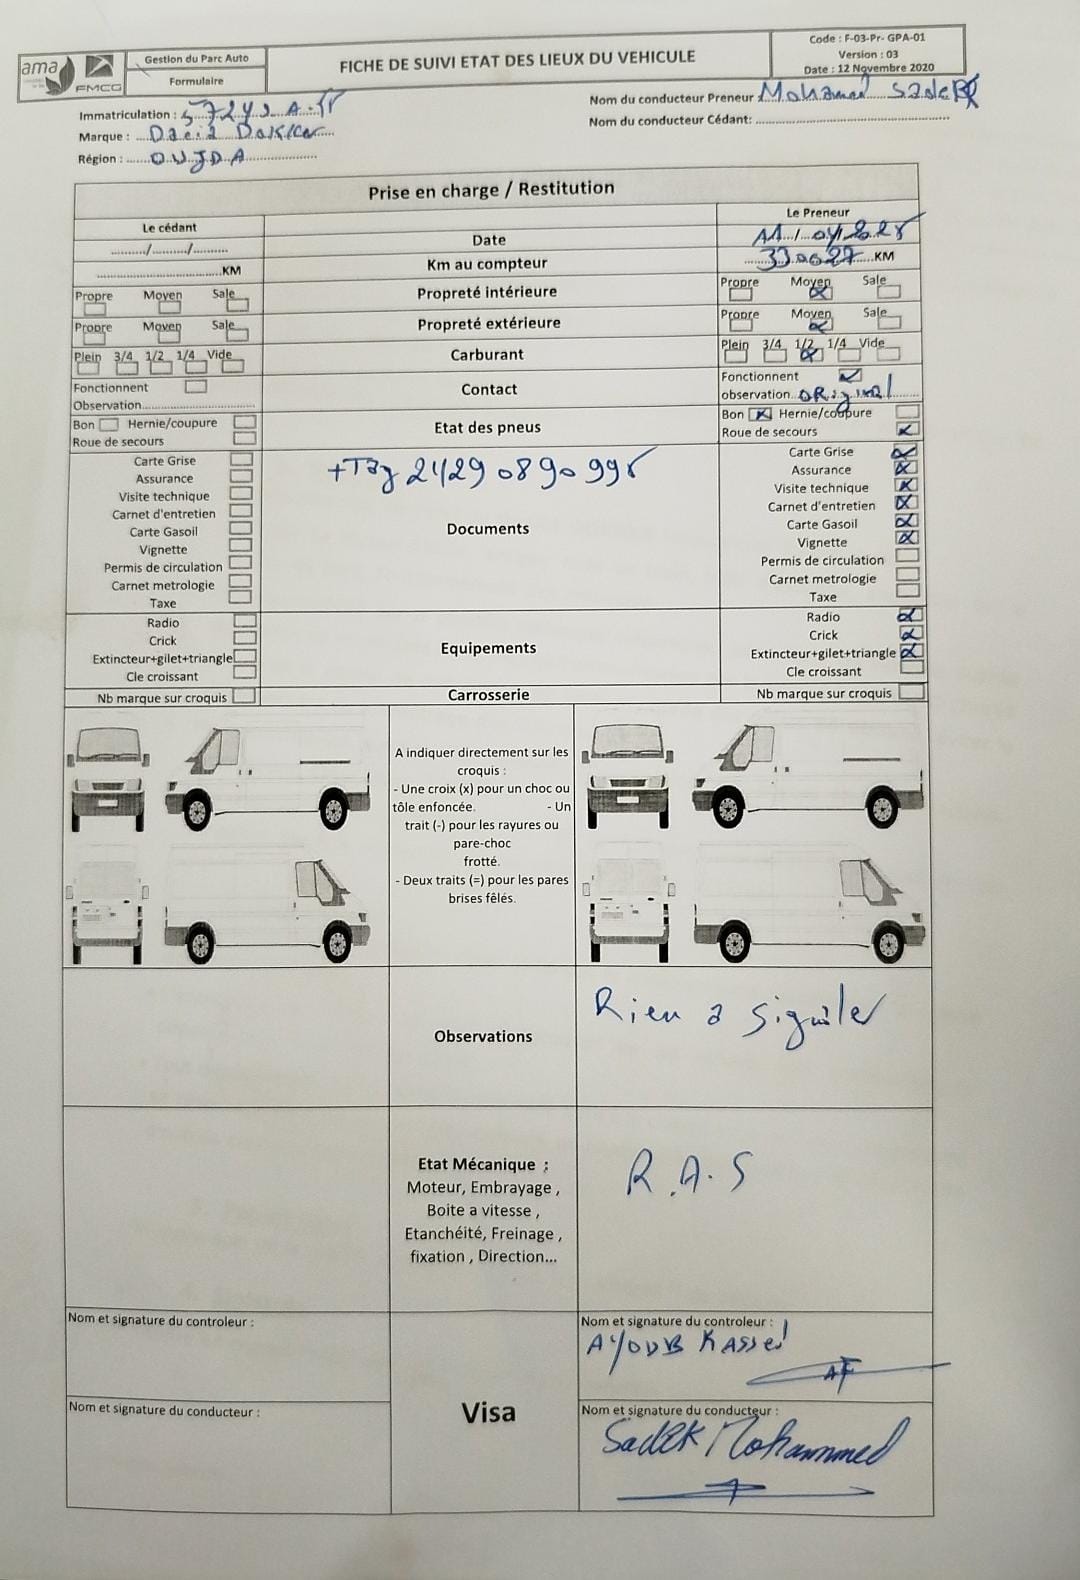 ama
FMCG
Gestion du Parc Auto
Formulaire
FICHE DE SUIVI ETAT DES LIEUX DU VEHICULE
Code : F-03-Pr- GPA-01
Version : 03
Date : 12 Novembre 2020
Immatriculation :
Marque : Dacia Dokker
Région : OUJDA
Nom du conducteur Preneur Mohamed Sadek
Nom du conducteur Cédant:
Prise en charge / Restitution
Le cédant
Le Preneur
....../....../...... Date 11/04/2025
KM Km au compteur KM
Propre Moyen Sale Propreté intérieure Propre Moyen Sale
Propre Moyen Sale Propreté extérieure Propre Moyen Sale
Plein 3/4 1/2 1/4 Vide Carburant Plein 3/4 1/2 1/4 Vide
Fonctionnent Contact Fonctionnent
Observation observation original
Bon Hernie/coupure Etat des pneus Bon Hernie/coupure
Roue de secours Roue de secours
Carte Grise Carte Grise
+Tag
Assurance Assurance
Visite technique Visite technique
Carnet d'entretien Documents Carnet d'entretien
Carte Gasoil Carte Gasoil
Vignette Vignette
Permis de circulation Permis de circulation
Carnet metrologie Carnet metrologie
Taxe Taxe
Radio Radio
Crick Equipements Crick
Extincteur+gilet+triangle Extincteur+gilet+triangle
Cle croissant Cle croissant
Nb marque sur croquis Carrosserie Nb marque sur croquis
A indiquer directement sur les
croquis :
- Une croix (x) pour un choc ou
tôle enfoncée. - Un
trait (-) pour les rayures ou
pare-choc
frotté.
- Deux traits (=) pour les pares
brises fêlés.
Observations
Rien a signaler
Etat Mécanique :
Moteur, Embrayage ,
Boite a vitesse ,
Etanchéité, Freinage ,
fixation , Direction...
R.A.S
Nom et signature du controleur :
Nom et signature du controleur :
AYOUB Kassed
Nom et signature du conducteur :
Visa
Nom et signature du conducteur :
SadEK Mohammed